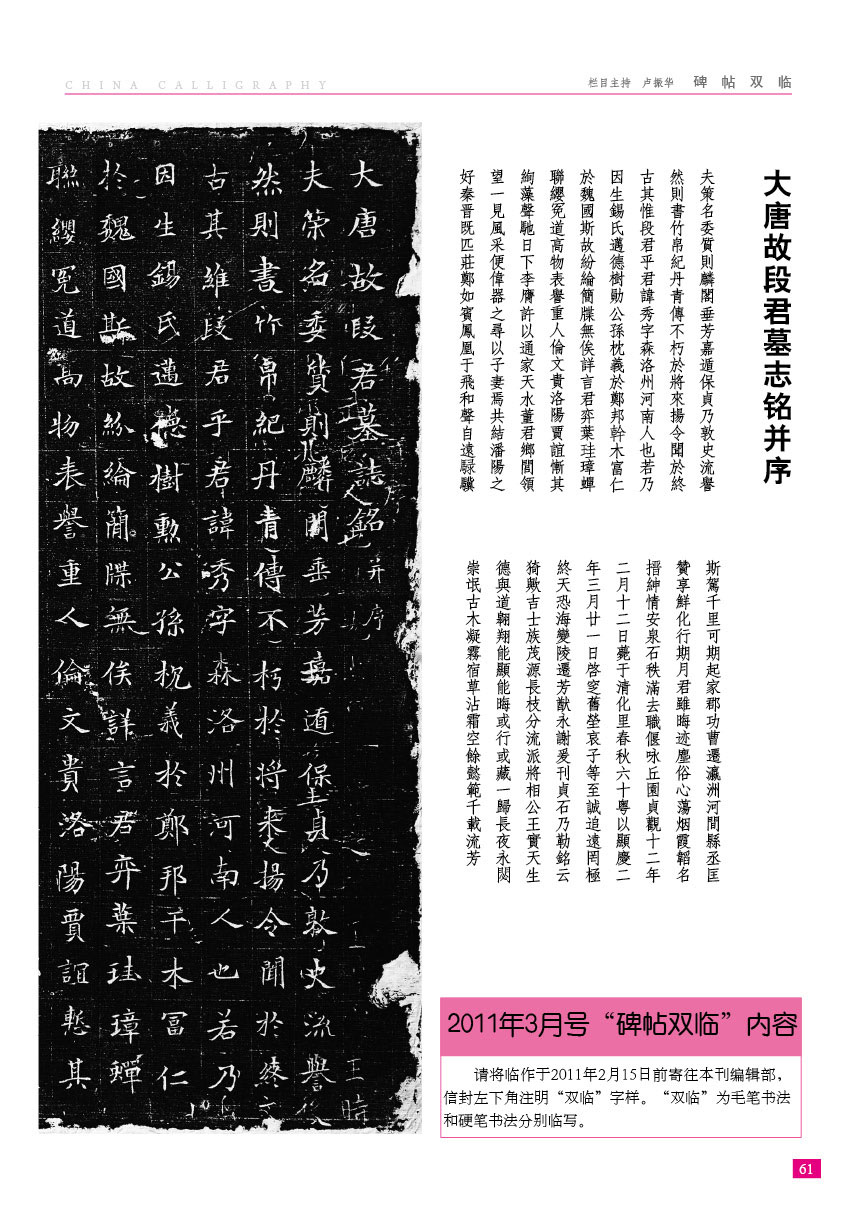 CHINA CALLIGRAPHY
栏目主持 卢振华 碑帖双临
大唐故段君墓誌銘并序
夫策名委質則麟閣垂芳嘉遁保貞乃敦史流譽
然則書竹帛紀丹青傳不朽於将来揚令聞於終
古其維段君乎君諱秀字森洛州河南人也若乃
因生錫氏邁德樹勳公孫枕義於鄭邦干木富仁
於魏國斯故紛綸簡牒無俟詳言君弈葉珪璋蟬
聯纓冕道高物表譽重人倫文貴洛陽賈誼慙其
大唐故段君墓志铭并序
夫策名委質則麟閣垂芳嘉遁保貞乃敦史流譽
然則書竹帛紀丹青傳不朽於將來揚令聞於終
古其惟段君乎君諱秀字森洛州河南人也若乃
因生錫氏邁德樹勛公孫枕義於鄭邦幹木富仁
於魏國斯故紛綸簡牒無俟詳言君弈葉珪璋蟬
聯纓冕道高物表譽重人倫文貴洛陽賈誼慚其
絢藻聲馳日下李膺許以通家天水董君鄉閭領
望一見風采便偉器之尋以子妻焉共結潘陽之
好秦晋既匹莊鄭如賓鳳凰于飛和聲自遠騄驥
斯駕千里可期起家郡功曹遷瀛洲河間縣丞匡
贊享鮮化行期月君雖晦迹塵俗心蕩烟霞韜名
搢紳情安泉石秩滿去職偃咏丘園貞觀十二年
二月十二日薨于清化里春秋六十粤以顯慶二
年三月廿一日啓窆舊塋哀子等至誠追遠罔極
終天恐海變陵遷芳猷永謝爰刊貞石乃勒銘云
猗歟吉士族茂源長枝分流派將相公王實天生
德與道翱翔能顯能晦或行或藏一歸長夜永閟
崇氓古木凝霧宿草沾霜空餘懿範千載流芳
2011年3月号“碑帖双临”内容
请将临作于2011年2月15日前寄往本刊编辑部，
信封左下角注明“双临”字样。“双临”为毛笔书法
和硬笔书法分别临写。
61